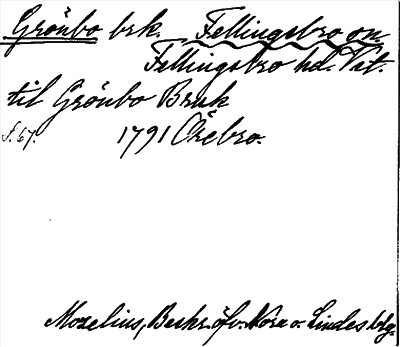 Grönbo brk. Fellingsbro sn.
Fellingsbro hd. Vst.
til Grönbo Bruk
s. 67. 1791 Örebro.
Mozelius, Beskr. öfv. Nora o. Lindes blg.